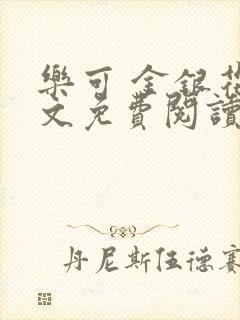 樂可 金銀花
文免費閱讀
丹尼斯伍德賽